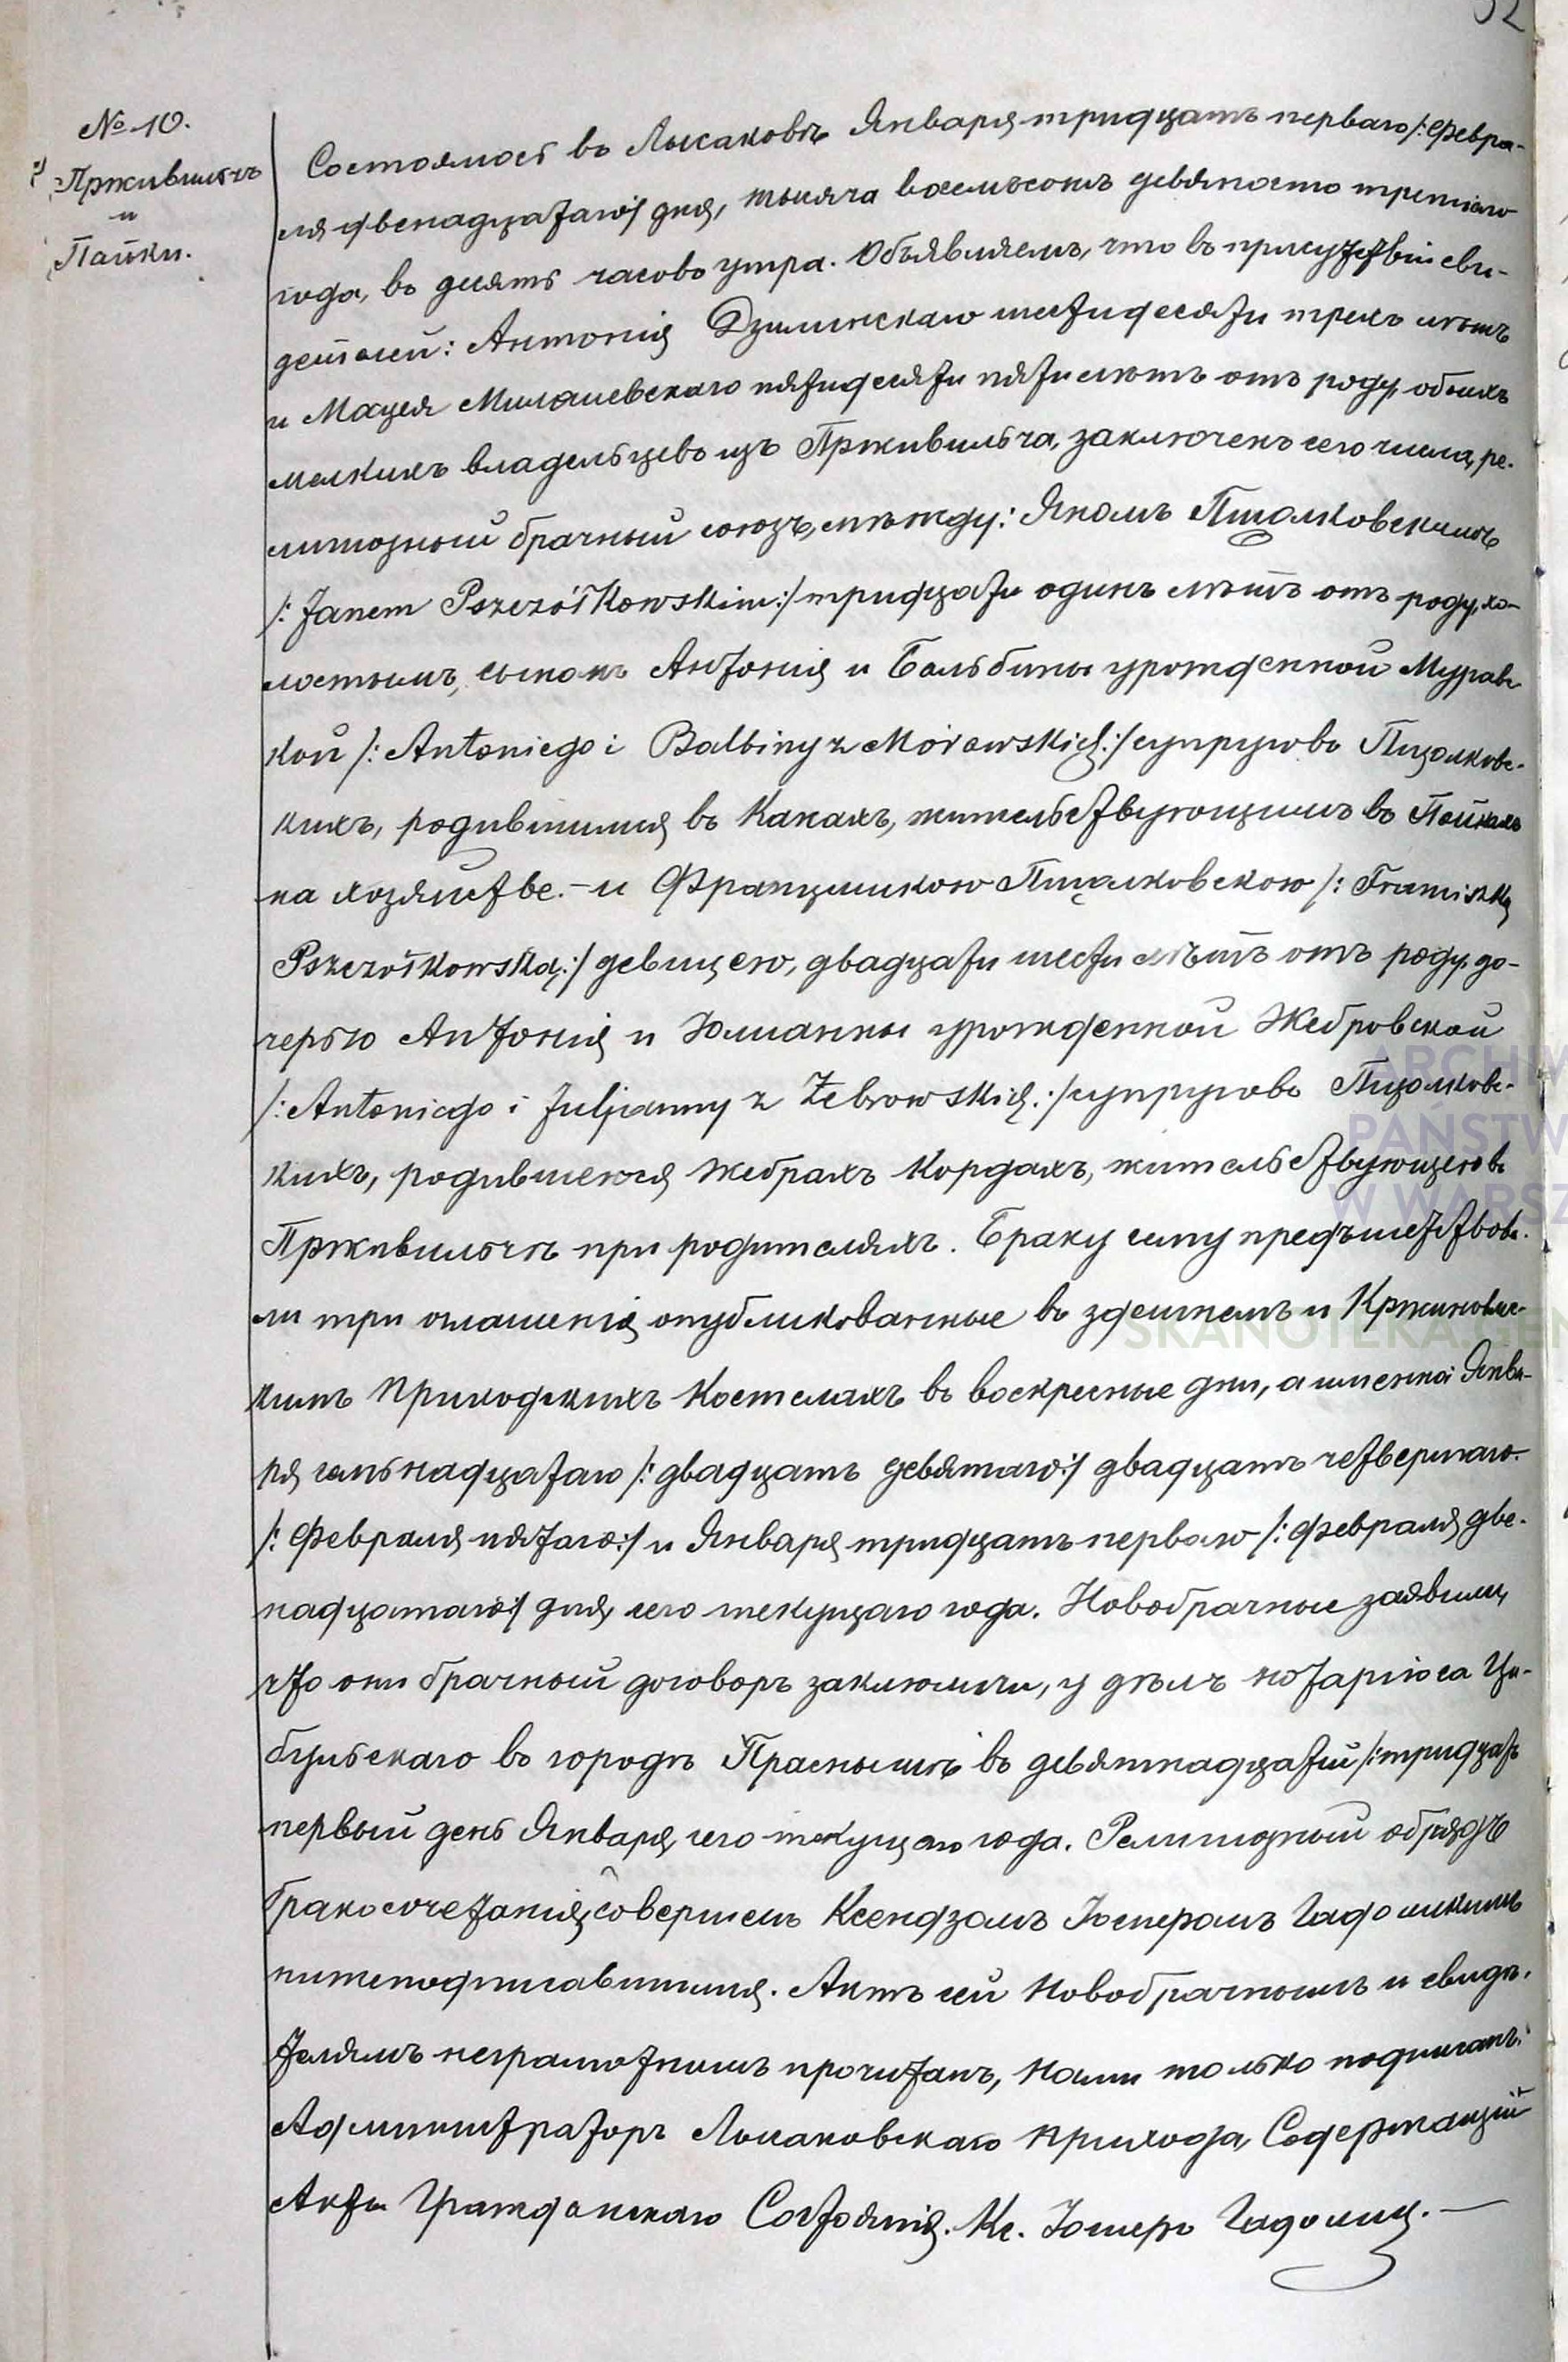 52
№ 10.
Прживильчъ
и
Пайки.
Состоялось въ Лысаковѣ Января тридцать перваго /: Февра-
ля двенадцатаго :/ дня, тысяча восемьсотъ девяносто третіяго
года, въ десять часовъ утра. Объявляемъ, что въ присутствіи сви-
детелей: Антонія Дзилинскаго шестидесяти трехъ лѣтъ
и Мацея Милашевскаго пятидесяти пяти лѣтъ отъ роду, обоихъ
мелкихъ владельцевъ изъ Пржвильча, заключенъ сего числа, ре-
лигіозный брачный союзъ, между: Яномъ Пщолковскимъ
/: Janem Pszczółkowskim :/ тридцати одинъ лѣтъ отъ роду, хо-
лостымъ, сыномъ Антонія и Бальбины урожденной Муравс-
кой /: Antoniego i Balbiny z Morawskich :/ супруговъ Пщолковс-
кихъ, родившимся въ Какахъ, жительствующимъ въ Пайкахъ
на хозяйстве. — и Францишкою Пщолковскою /: Franciszką
Pszczółkowską :/ девицею, двадцати шести лѣтъ отъ роду, до-
черью Антонія и Юліанны урожденной Жебровской
/: Antoniego i Juljanny z Żebrowskich :/ супруговъ Пщолковс-
кихъ, родившеюся Жебрахъ Кордахъ, жительствующею въ
Пржвильчѣ при родителяхъ. Браку сему предъшествова-
ли три оглашенія опубликованные въ здешнемъ и Кржиновлог-
кимъ приходскихъ Костелахъ въ воскресные дни, а именно: Янва-
ря семьнадцатаго /: двадцать девятаго :/ двадцать четвертаго
/: Февраля пятаго :/ и Января тридцать перваго /: Февраля две-
надцатаго :/ дня, сего текущаго года. Новобрачные заявили,
что они брачный договоръ заключили, у дѣлъ нотаріюса Цы-
бульскаго въ городѣ Праснышѣ въ девятнадцатый /: тридцать
первый день Января, сего текущаго года. Религіозный обрядъ
бракосочетанія, совершенъ Ксендзомъ Юзеромъ Гадомскимъ
нижеподписавшимся. Актъ сей Новобрачнымъ и свидѣ-
телямъ неграмотнымъ прочитанъ, Нами только подписанъ.
Администраторъ Лысаковскаго прихода, Содержащій
Акты Гражданскаго Состоянія. Кс.